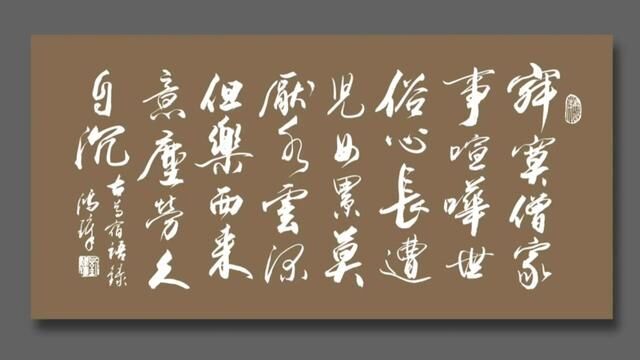 寂寞僧家
事喧嘩世
俗心長遭
児女累莫
厭水雲深
但樂西来
意塵勞久
自沉
古尊宿語録